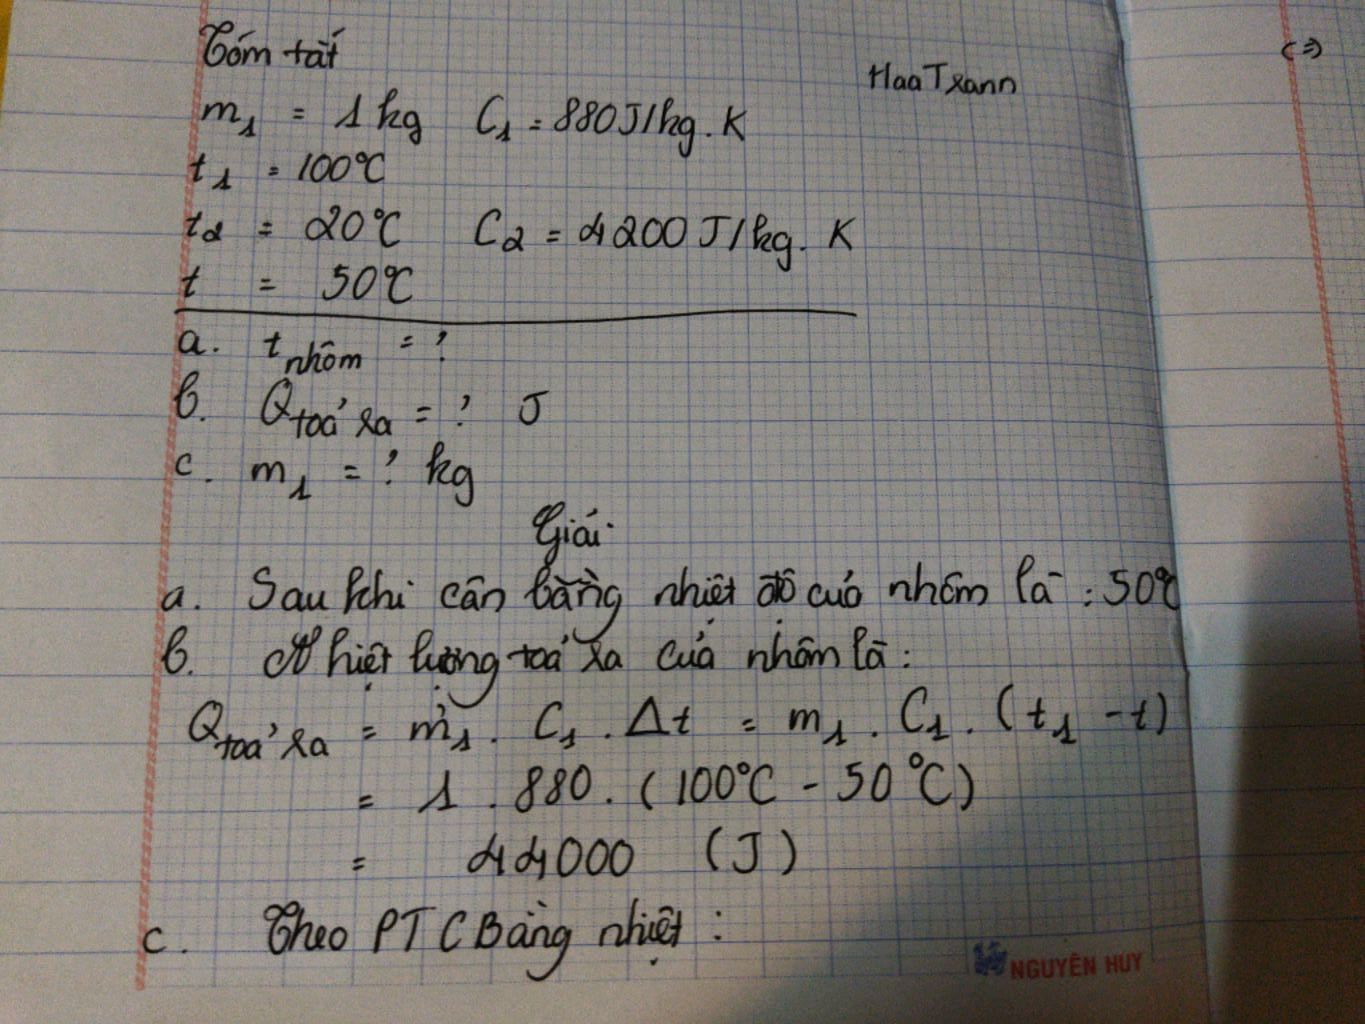 Tóm tắt
HaaTxann
m₁ = 1 kg C₁ = 880J/kg.K
t₁ = 100°C
t₂ = 20°C C₂ = 4200J/kg.K
t = 50°C
a. t nhôm = ?
b. Q toả ra = ? J
c. m₁ = ? kg
Giải
a. Sau khi cân bằng nhiệt độ của nhôm là : 50°C
b. Nhiệt lượng toả ra của nhôm là :
Q toả ra = m₁ . C₁ . Δt = m₁ . C₁ . (t₁ - t)
= 1 . 880 . (100°C - 50°C)
= 44000 (J)
c. Theo PTCBằng nhiệt :
NGUYÊN HUY
(=)